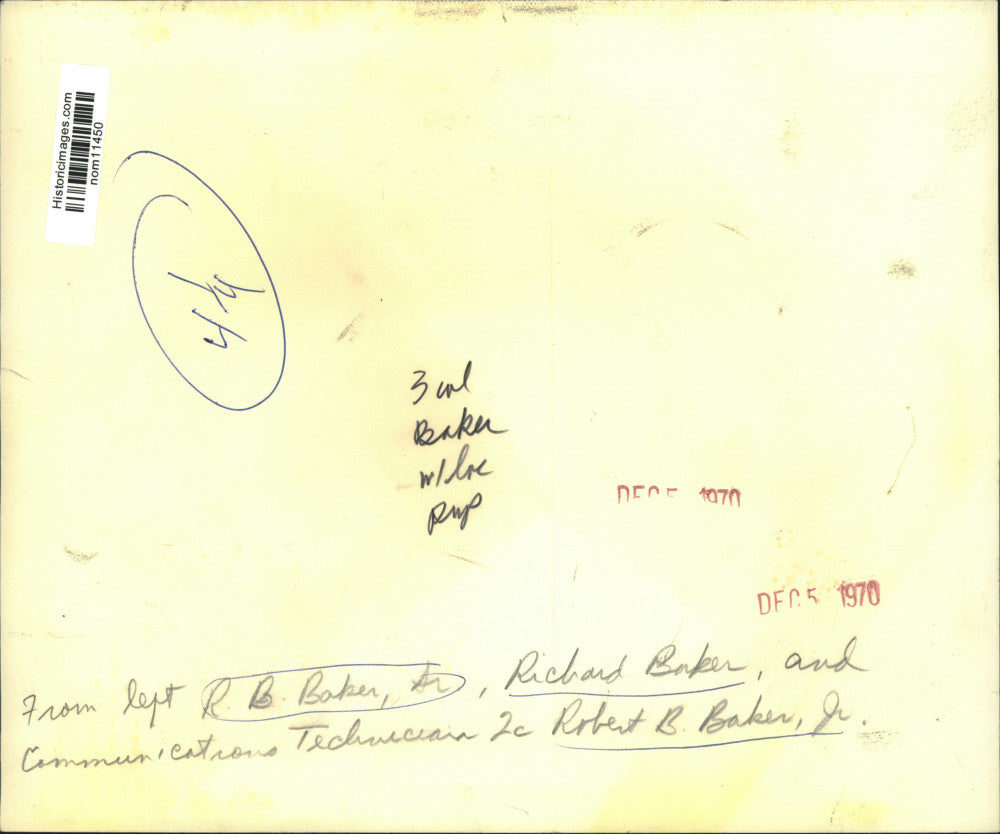 Historicimages.com
nom11450
3 col
Baker
w/loc
RWP
DEC 5 1970
DEC 5 1970
From left R. B. Baker, Sr, Richard Baker, and
Communications Technician 2c Robert B. Baker, Jr.